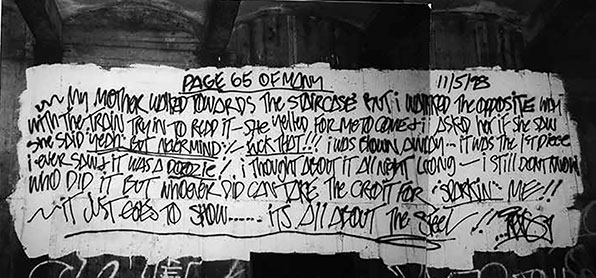 PAGE 65 OF MANY 11/5/93
~ MY MOTHER WALKED TOWARDS THE STAIRCASE BUT i WALKED THE OPPOSITE WAY
WITH THE TRAIN TRYIN TO READ IT - SHE YELLED FOR ME TO COME & i ASKED HER IF SHE SAW
SHE SAID YEAH BUT NEVERMIND - FUCK THAT!!! i WAS BLOWN AWAY... IT WAS THE 1ST PIECE
i EVER SAW & IT WAS A DOOZIE! i THOUGHT ABOUT IT ALL NIGHT LONG - i STILL DONT KNOW
WHO DID IT BUT WHOEVER DID CAN TAKE THE CREDIT FOR "SPARKIN" ME!!
~ IT JUST GOES TO SHOW...... ITS ALL ABOUT THE STEEL!!